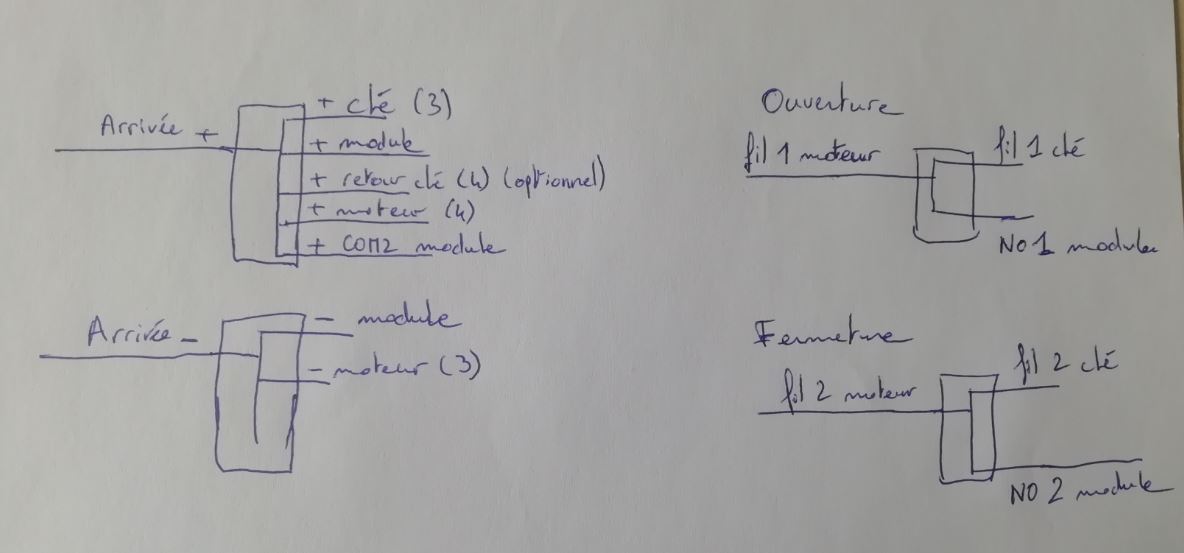 Arrivée +
+ clé (3)
+ module
+ retour clé (4) (optionnel)
+ moteur (4)
+ COM2 module
Arrivée -
- module
- moteur (3)
Ouverture
fil 1 moteur
fil 1 clé
NO 1 module
Fermeture
fil 2 moteur
fil 2 clé
NO 2 module